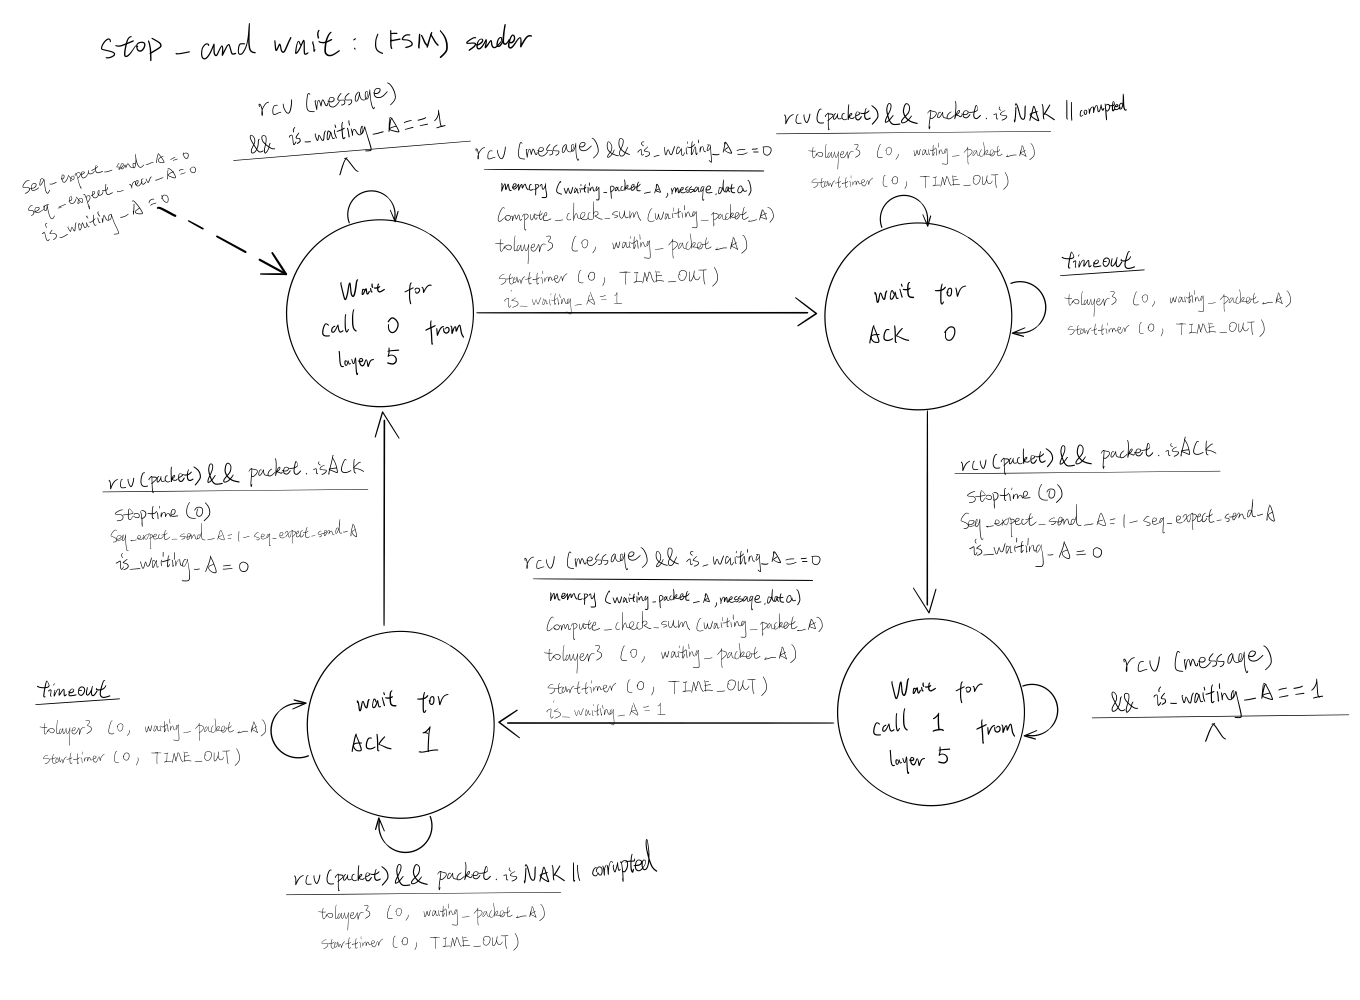 stop_and wait : (FSM) sender
seq_expect_send_A=0
seq_expect_recv_A=0
is_waiting_A=0
rcv (message)
&& is_waiting_A==1
Λ
rcv (message) && is_waiting_A==0
memcpy (waiting_packet_A, message.data)
Compute_check_sum (waiting_packet_A)
tolayer3 (0, waiting_packet_A)
starttimer (0, TIME_OUT)
is_waiting_A=1
rcv(packet) && packet.isNAK || corrupted
tolayer3 (0, waiting_packet_A)
starttimer (0, TIME_OUT)
Timeout
tolayer3 (0, waiting_packet_A)
starttimer (0, TIME_OUT)
Wait for
call 0 from
layer 5
wait for
ACK 0
rcv(packet) && packet.isACK
stoptime (0)
Seq_expect_send_A=1-seq_expect_send_A
is_waiting_A=0
rcv(packet) && packet.isACK
stoptime (0)
Seq_expect_send_A=1-seq_expect_send_A
is_waiting_A=0
rcv (message) && is_waiting_A==0
memcpy (waiting_packet_A, message.data)
Compute_check_sum (waiting_packet_A)
tolayer3 (0, waiting_packet_A)
starttimer (0, TIME_OUT)
is_waiting_A=1
Timeout
tolayer3 (0, waiting_packet_A)
starttimer (0, TIME_OUT)
wait for
ACK 1
Wait for
call 1 from
layer 5
rcv (message)
&& is_waiting_A==1
Λ
rcv(packet) && packet.isNAK || corrupted
tolayer3 (0, waiting_packet_A)
starttimer (0, TIME_OUT)